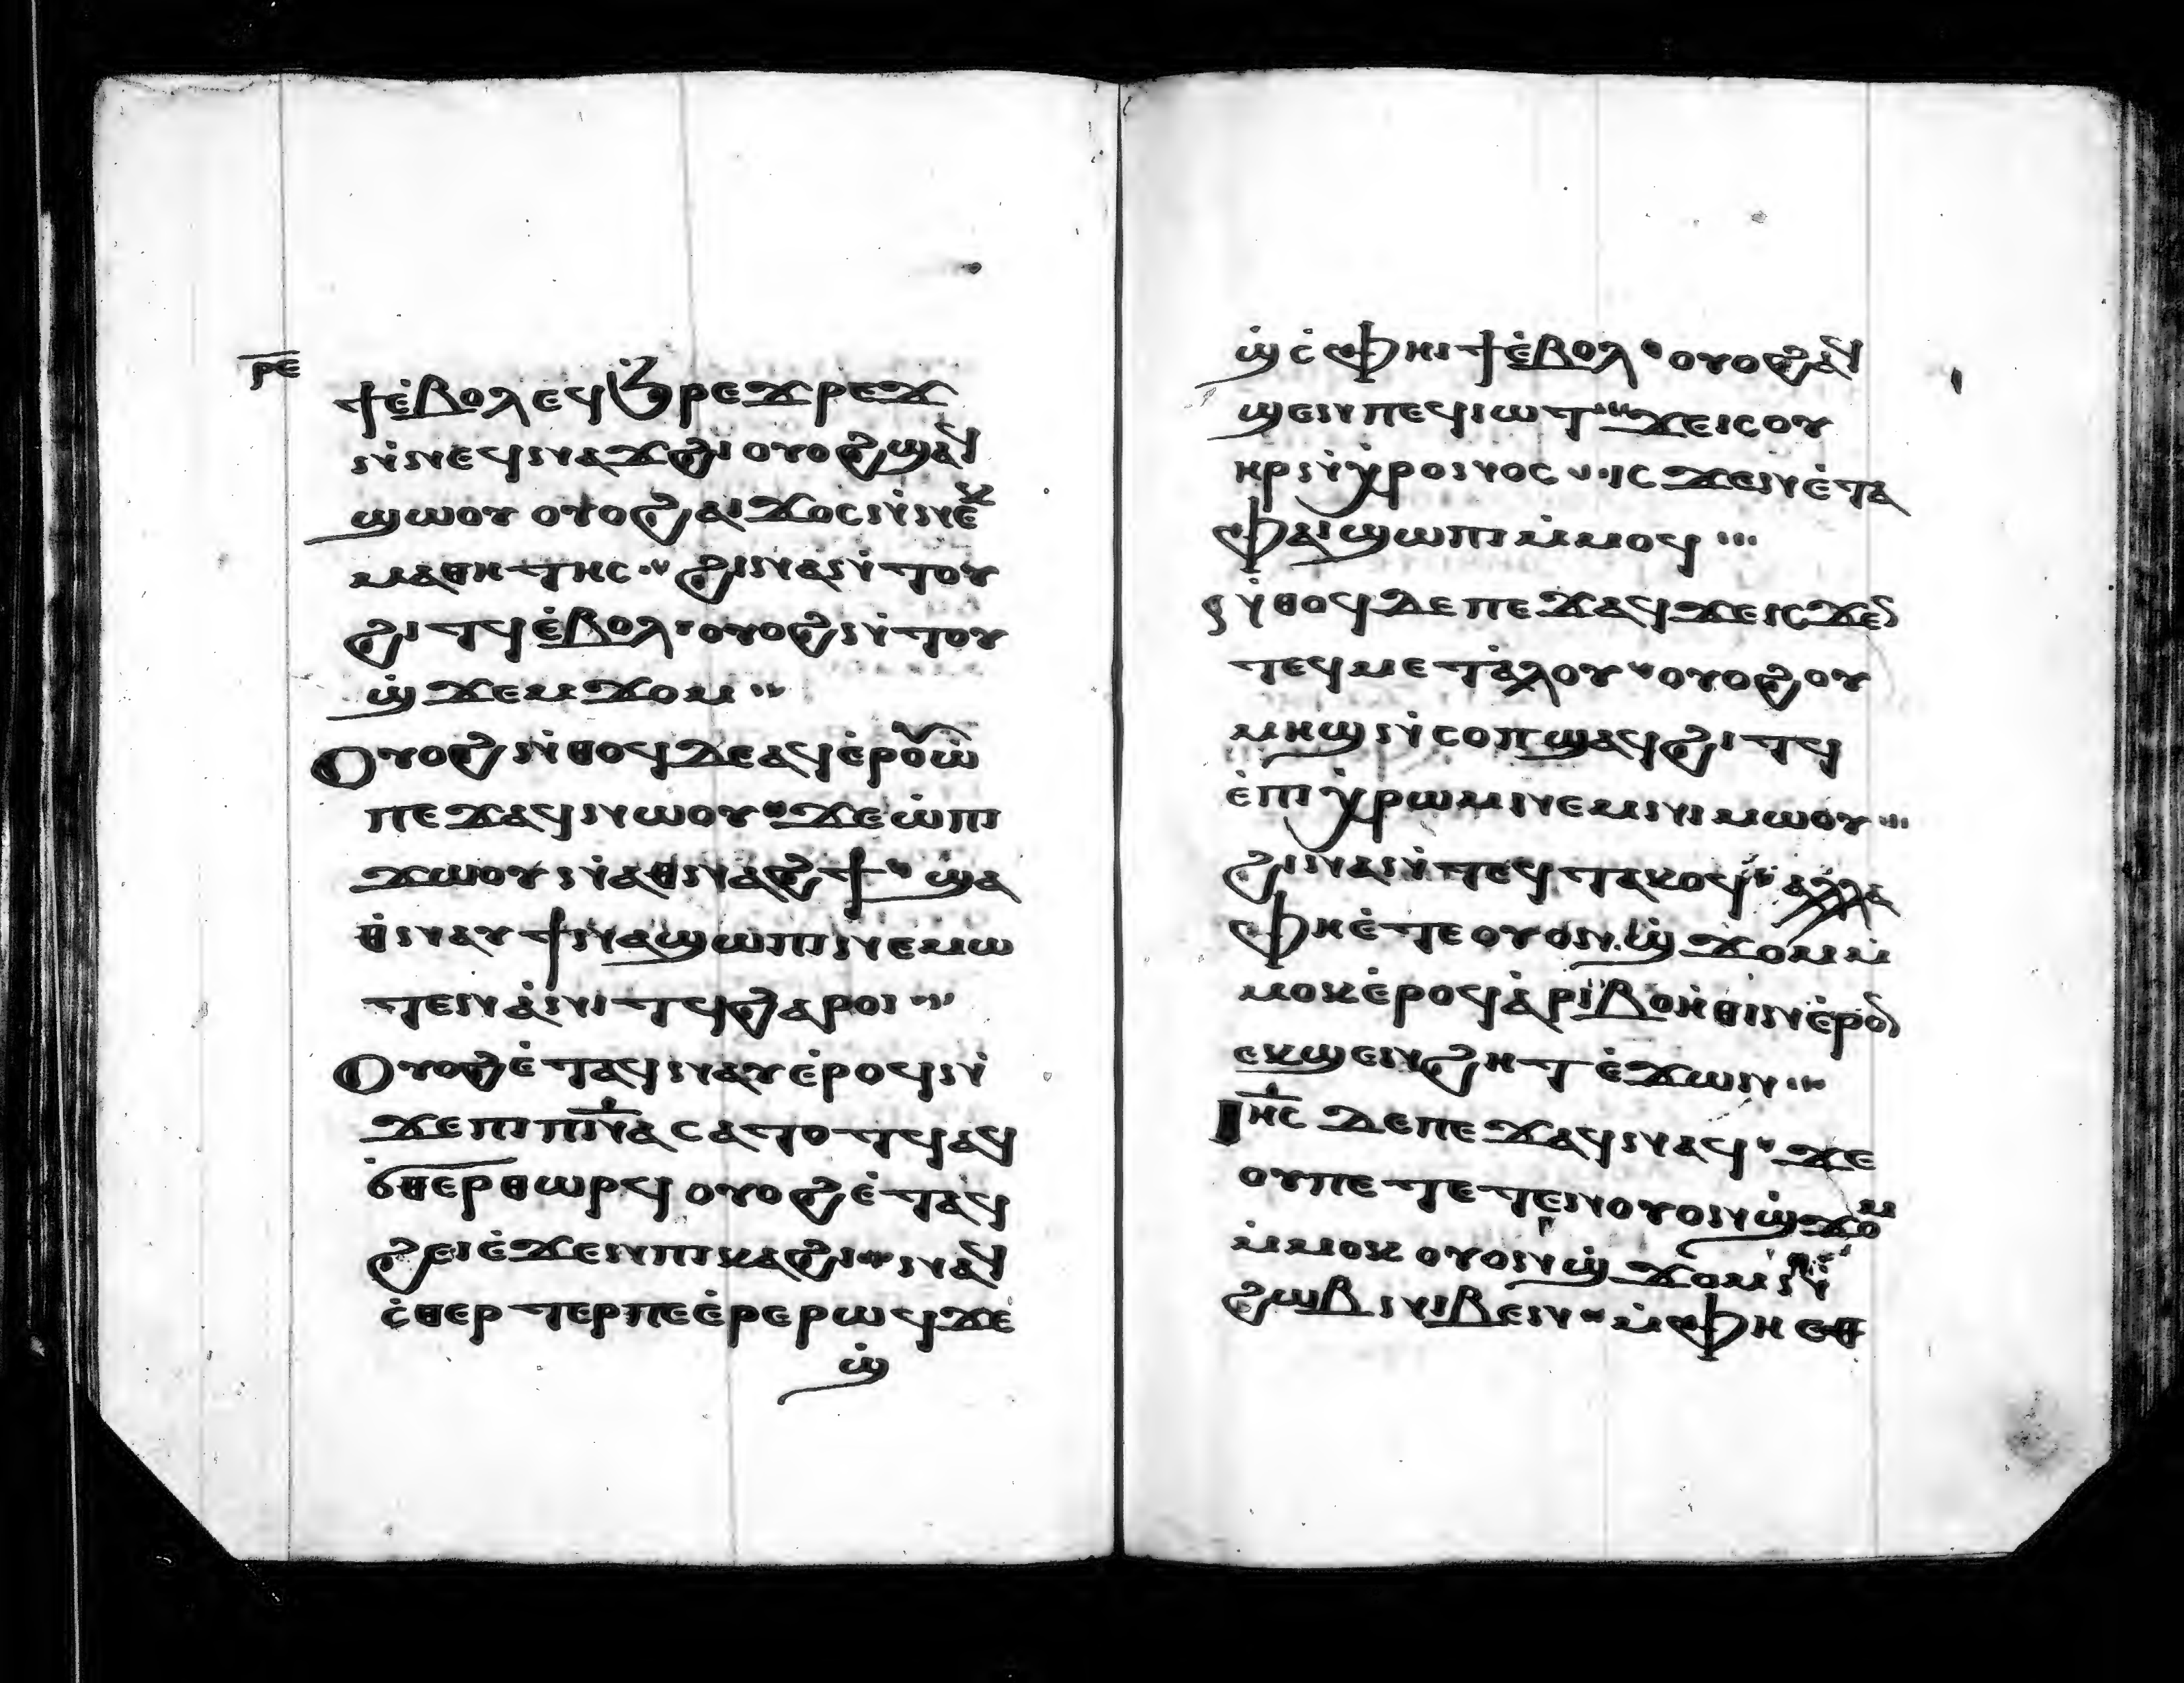 ⲣⲉ
ϯⲉ̀ⲃⲟⲗⲉϥϧ̇ⲣⲉϫⲣⲉϫ
ⲛ̀ⲛⲉϥⲛⲁϫϩⲓ ⲟⲩⲟϩ ϣⲁϥ
ϣⲱⲟⲩ ⲟⲩⲟϩ ⲁⲓϫⲟⲥ ⲛ̀ⲛⲉⲕ
ⲙⲁⲑⲏⲧⲏⲥ ϩⲓⲛⲁ ⲛ̀ⲧⲟⲩ
ϩⲓⲧϥ ⲉ̀ⲃⲟⲗ ⲟⲩⲟϩ ⲛ̀ⲧⲟⲩ
ϣ̀ϫⲉⲙϫⲟⲙ
Ⲟⲩⲟϩ ⲛ̀ⲑⲟϥ ⲇⲉ ⲁϥⲉ̀ⲣⲟⲩⲱ̀
ⲡⲉϫⲁϥ ⲛⲱⲟⲩ ϫⲉ ⲱ̀ ⲡⲓ
ϫⲱⲟⲩ ⲛ̀ⲁⲑⲛⲁϩϯ ϣⲁ
ⲑⲛⲁⲩ ϯⲛⲁϣⲱⲡⲓ ⲛⲉⲙⲱ
ⲧⲉⲛ ⲁ̀ⲛⲓⲧϥ ϩⲁⲣⲟⲓ
Ⲟⲩⲟϩ ⲉ̀ⲧⲁϥⲛⲁⲩ ⲉ̀ⲣⲟϥ ⲛ̀
ϫⲉ ⲡⲓⲡⲛⲁ ⲥⲁⲧⲟⲧϥ ⲁϥ
ⲥ̀ⲑⲉⲣⲑⲱⲣϥ ⲟⲩⲟϩ ⲉ̀ⲧⲁϥ
ϩⲉⲓ ⲉ̀ϫⲉⲛ ⲡⲓⲕⲁϩⲓ ⲛⲁϥ
ⲥ̀ⲑⲉⲣⲧⲉⲣ ⲡⲉ ⲉ̀ⲣⲉ ⲣⲱϥ ϫⲉ
ϣ̀
ϣ̀ ⲥ̀ⲫⲏⲓϯ ⲉ̀ⲃⲟⲗ ⲟⲩⲟϩ ⲁϥ
ϣⲉⲛ ⲡⲉϥⲓⲱⲧ ϫⲉ ⲓⲥ ⲟⲩ
ⲏⲣ ⲛ̀ⲭⲣⲟⲛⲟⲥ ⲓⲥϫⲉⲛ ⲉ̀ⲧⲁ
ⲫⲁⲓ ϣⲱⲡⲓ ⲙ̀ⲙⲟϥ
ⲛ̀ⲑⲟϥ ⲇⲉ ⲡⲉϫⲁϥ ϫⲉ ⲓⲥϫⲉⲛ
ⲧⲉϥⲙⲉⲧⲁ̀ⲗⲟⲩ ⲟⲩⲟϩ ⲟⲩ
ⲙⲏϣ ⲛ̀ⲥⲟⲡ ϣⲁϥϩⲓⲧϥ
ⲉ̀ⲡⲓⲭ̀ⲣⲱⲙ ⲛⲉⲙ ⲛⲓⲙⲱⲟⲩ
ϩⲓⲛⲁ ⲛ̀ⲧⲉϥⲧⲁⲕⲟϥ ⲁⲗⲗⲁ
ⲫⲏ ⲉ̀ⲧⲉ ⲟⲩⲟⲛ ϣ̀ϫⲟⲙ ⲙ̀
ⲙⲟⲕ ⲉ̀ⲣⲟϥ ⲁ̀ⲣⲓⲃⲟⲏ̀ⲑⲓⲛ ⲉ̀ⲣⲟⲛ
ⲉⲕϣⲉⲛϩⲏⲧ ⲉ̀ϫⲱⲛ
Ⲓⲏⲥ ⲇⲉ ⲡⲉϫⲁϥ ⲛⲁϥ ϫⲉ
ⲟⲩⲡⲉⲧⲉⲧⲉⲛ ⲟⲩⲟⲛ ϣ̀ϫⲟⲙ
ⲙ̀ⲙⲟⲕ ⲟⲩⲟⲛ ϣ̀ϫⲟⲙ ⲛ̀
ϩⲱⲃ ⲛⲓⲃⲉⲛ ⲙ̀ⲫⲏ ⲉⲑ